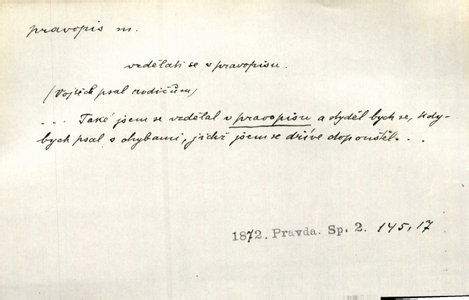 pravopis m.
vzdělati se v pravopisu.
(Vojtěch psal rodičům)
... Také jsem se vzdělal v pravopisu a styděl bych se, kdy-
bych psal s chybami, jichž jsem se dříve dopouštěl...
1872. Pravda. Sp. 2. 145,17